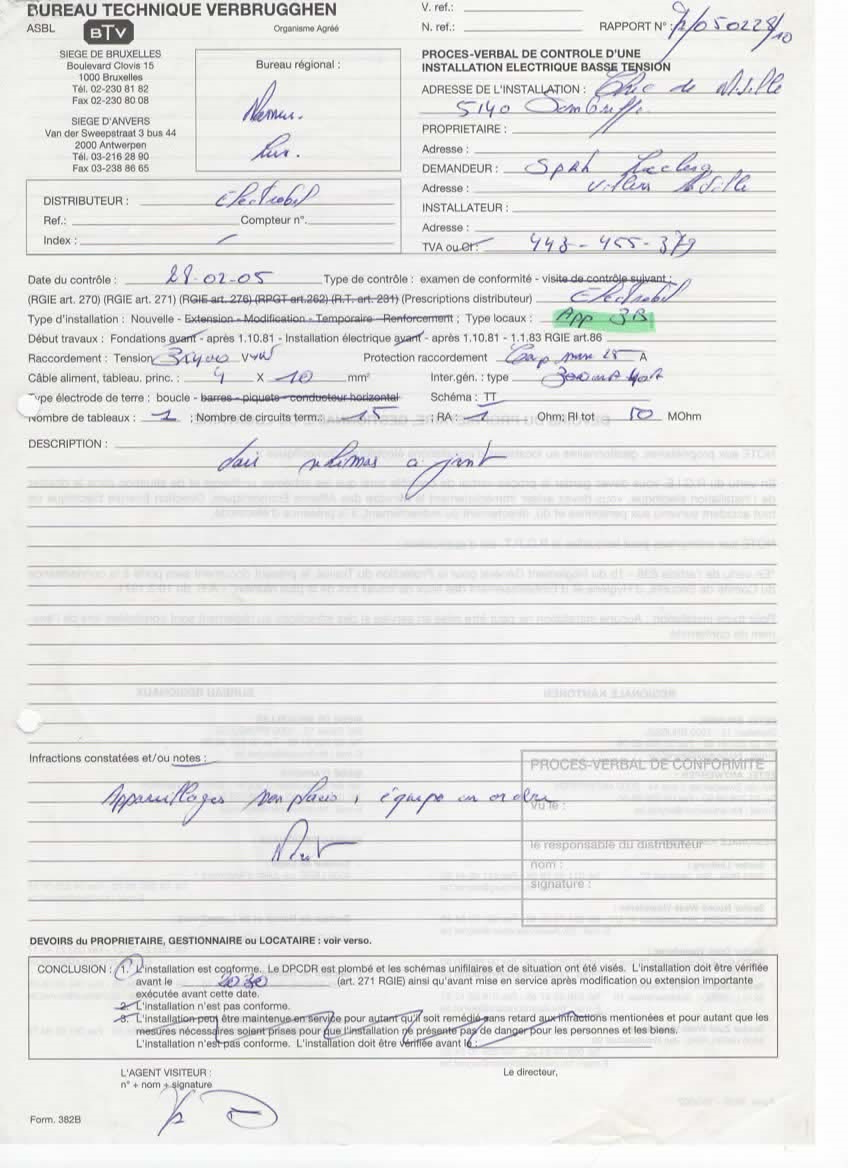 BUREAU TECHNIQUE VERBRUGGHEN
ASBL
BTV
Organisme Agréé
V. ref.:
N. ref.:
RAPPORT N° : /050228/10
SIEGE DE BRUXELLES
Boulevard Clovis 15
1000 Bruxelles
Tél. 02-230 81 82
Fax 02-230 80 08
SIEGE D'ANVERS
Van der Sweepstraat 3 bus 44
2000 Antwerpen
Tél. 03-216 28 90
Fax 03-238 86 65
Bureau régional :
Namur.
Lux.
PROCES-VERBAL DE CONTROLE D'UNE
INSTALLATION ELECTRIQUE BASSE TENSION
ADRESSE DE L'INSTALLATION : de
5140 Sombreffe
PROPRIETAIRE :
Adresse :
DEMANDEUR : SPRL
Adresse : Villers
INSTALLATEUR :
Adresse :
TVA ou CI : 448-455-379
DISTRIBUTEUR : Electrabel
Ref.: Compteur n°.
Index :
Date du contrôle : 28-02-05 Type de contrôle : examen de conformité - visite de contrôle suivant :
(RGIE art. 270) (RGIE art. 271) (RGIE art. 276) (RPGT art.262) (R.T. art. 231) (Prescriptions distributeur) Electrabel
Type d'installation : Nouvelle - Extension - Modification - Temporaire - Renforcement ; Type locaux : App 3B
Début travaux : Fondations avant - après 1.10.81 - Installation électrique avant - après 1.10.81 - 1.1.83 RGIE art.86
Raccordement : Tension 3x400 V+N Protection raccordement 25 A
Câble aliment, tableau. princ. : 4 X 10 mm² Inter.gén. : type 300mA 40A
Type électrode de terre : boucle - barres - piquets - conducteur horizontal Schéma : TT
Nombre de tableaux : 1 ; Nombre de circuits term. : 15 ; RA : 1 Ohm; RI tot 50 MOhm
DESCRIPTION :
schémas a joint
Infractions constatées et/ou notes :
Appareillages non placés, équipe en ordre
PROCES-VERBAL DE CONFORMITE
Vu le :
le responsable du distributeur
nom :
signature :
DEVOIRS du PROPRIETAIRE, GESTIONNAIRE ou LOCATAIRE : voir verso.
CONCLUSION : 1. L'installation est conforme. Le DPCDR est plombé et les schémas unifilaires et de situation ont été visés. L'installation doit être vérifiée
avant le 2030 (art. 271 RGIE) ainsi qu'avant mise en service après modification ou extension importante
exécutée avant cette date.
2. L'installation n'est pas conforme.
3. L'installation peut être maintenue en service pour autant qu'il soit remédié sans retard aux infractions mentionées et pour autant que les
mesures nécessaires soient prises pour que l'installation ne présente pas de danger pour les personnes et les biens.
L'installation n'est pas conforme. L'installation doit être vérifiée avant le :
L'AGENT VISITEUR :
n° + nom + signature
Le directeur,
Form. 382B